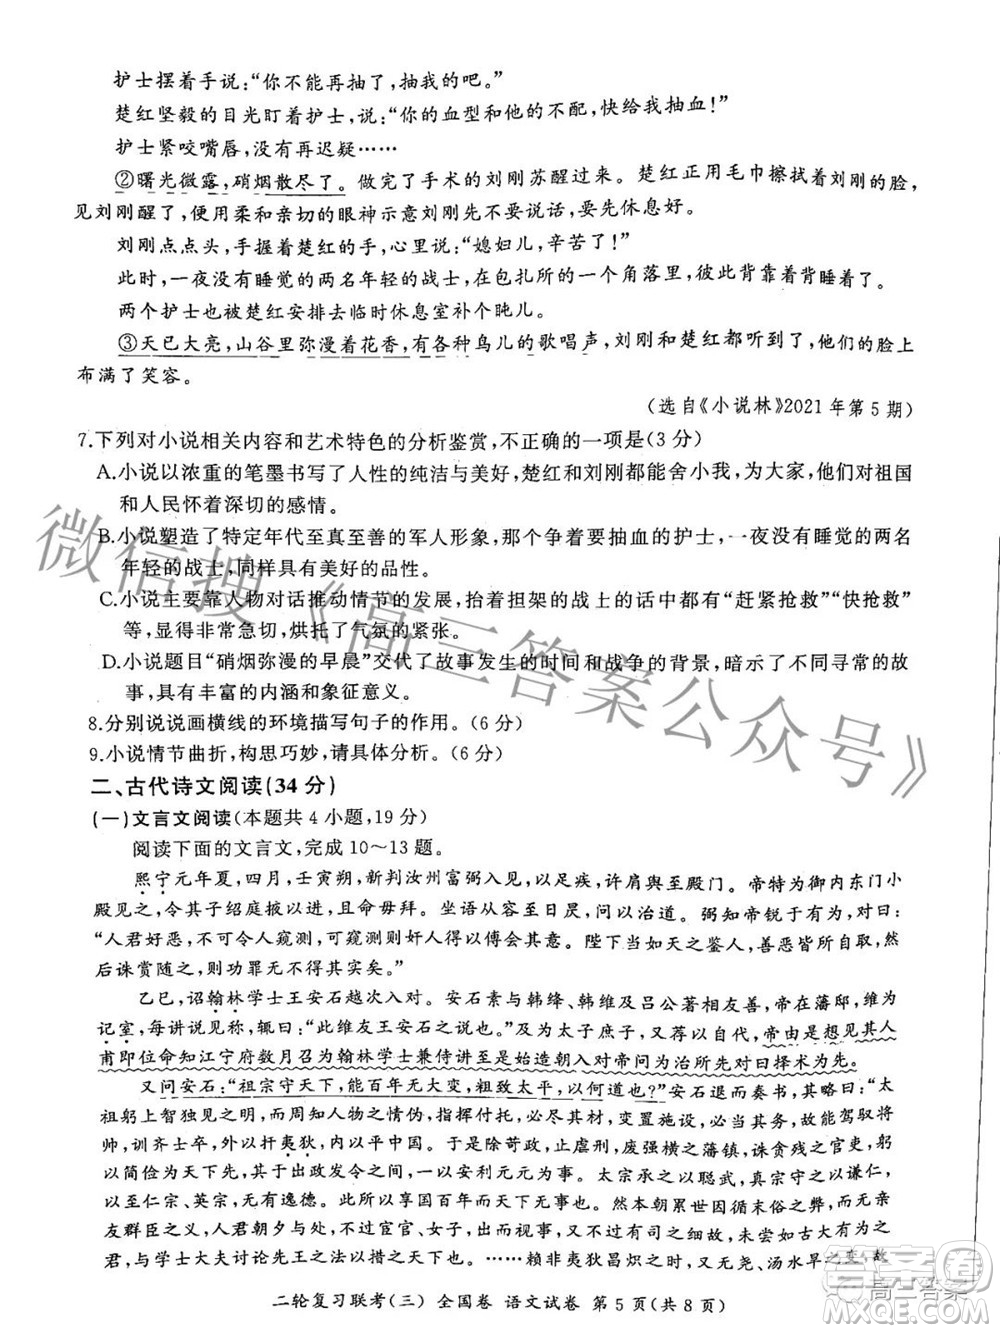 护士摆着手说:“你不能再抽了,抽我的吧。”
楚红坚毅的目光盯着护士,说:“你的血型和他的不配,快给我抽血!”
护士紧咬嘴唇,没有再迟疑……
②曙光微露,硝烟散尽了。做完了手术的刘刚苏醒过来。楚红正用毛巾擦拭着刘刚的脸,
见刘刚醒了,便用柔和亲切的眼神示意刘刚先不要说话,要先休息好。
刘刚点点头,手握着楚红的手,心里说:“媳妇儿,辛苦了!”
此时,一夜没有睡觉的两名年轻的战士,在包扎所的一个角落里,彼此背靠着背睡着了。
两个护士也被楚红安排去临时休息室补个盹儿。
③天已大亮,山谷里弥漫着花香,有各种鸟儿的歌唱声,刘刚和楚红都听到了,他们的脸上
布满了笑容。
(选自《小说林》2021年第5期)
7.下列对小说相关内容和艺术特色的分析鉴赏,不正确的一项是(3分)
A.小说以浓重的笔墨书写了人性的纯洁与美好,楚红和刘刚都能舍小我,为大家,他们对祖国
和人民怀着深切的感情。
B.小说塑造了特定年代至真至善的军人形象,那两个争着要抽血的护士,一夜没有睡觉的两名
年轻的战士,同样具有美好的品性。
C.小说主要靠人物对话推动情节的发展,几组抬担架的战士的话都有“赶紧抢救”“快抢救”
等,显得非常急切,烘托了气氛的紧张。
D.小说题目“硝烟弥漫的早晨”交代了故事发生的时间和战争的背景,暗示了不同寻常的故
事,具有丰富的内涵和象征意义。
8.分别说说画横线的环境描写句子的作用。(6分)
9.小说情节曲折,构思巧妙,请具体分析。(6分)
二、古代诗文阅读(34分)
(一)文言文阅读(本题共4小题,19分)
阅读下面的文言文,完成10~13题。
熙宁元年夏,四月,壬寅朔,新判汝州富弼入见,以足疾,许肩舆至殿门。帝特为御内东门小
殿见之,令其子绍庭掖以进,且命毋拜。坐语从容至日昃,问以治道。弼知帝锐于有为,对曰:
“人君好恶,不可令人窥测,可窥测则奸人得以傅会其意。陛下当如天之鉴人,善恶皆所自取,然
后诛赏随之,则功罪无不得其实矣。”
乙巳,诏翰林学士王安石越次入对。安石素与韩绛、韩维及吕公著相友善,帝在藩邸,维为
记室,每讲说见称,辄曰:“此维友王安石之说也。”及为太子庶子,又荐以自代,帝由是想见其人
甫即位命知江宁府数月召为翰林学士兼侍讲至是始造朝入对帝问为治所先对曰择术为先。
又问安石:“祖宗守天下,能百年无大变,粗致太平,以何道也?”安石退而奏书,其略曰:“太
祖躬上智独见之明,而周知人物之情伪,指挥付托,必尽其材,变置设施,必当其务,故能驾驭将
帅,训齐士卒,外以扞夷狄,内以平中国。于是除苛政,止虐刑,废强横之藩镇,诛贪残之官吏,躬
以简俭为天下先,其于出政发令之间,一以安利元元为事。太宗承之以聪武,真宗守之以谦仁,
以至仁宗、英宗,无有逸德。此所以享国百年而天下无事也。然本朝累世因循末俗之弊,而无亲
友群臣之义,人君朝夕与处,不过宦官、女子,出而视事,又不过有司之细故,未尝如古大有为之
君,与学士大夫讨论先王之法以措之天下也。……赖非夷狄昌炽之时,又无尧、汤水旱之变,故
二轮复习联考(三) 全国卷 语文试卷 第5页(共8页)
微信搜《高三答案公众号》
答案圈